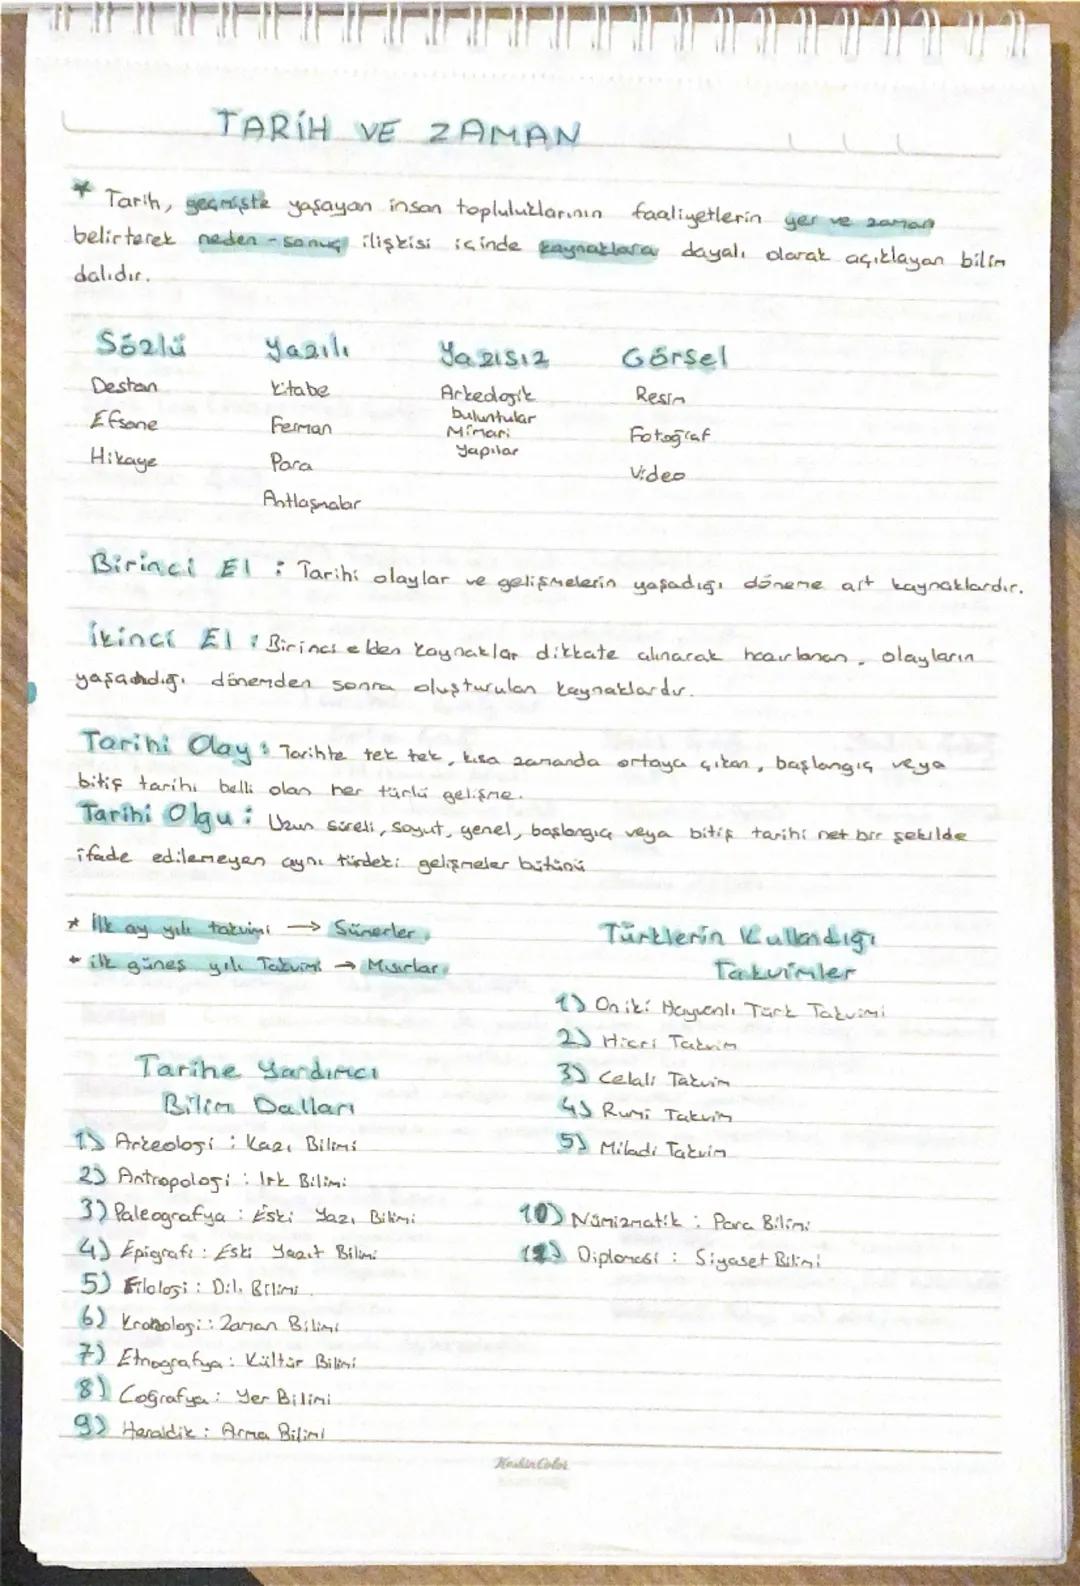 TARİH VE ZAMAN
* Tarih, geçmişte yaşayan insan topluluklarının faaliyetlerin yer ve zaman
belirterek neden-sonuç ilişkisi içinde kaynaklara dayalı olarak açıklayan bilim
dalıdır.
Sözlü
Destan
Efsane
Hikaye
Yazılı
Kitabe
Ferman
Para
Antlaşmalar
Yazısız
Arkeolojik
buluntular
Mimari
Yapılar
Görsel
Resim
Fotoğraf
Video
Birinci El : Tarihi olaylar ve gelişmelerin yaşadığı döneme ait kaynaklardır.
İkinci El : Birinci elden kaynaklar dikkate alınarak hazırlanan, olayların
yaşandığı dönemden sonra oluşturulan kaynaklardır.
Tarihi Olay : Tarihte tek tek, kısa zamanda ortaya çıkan, başlangıç veya
bitiş tarihi belli olan her türlü gelişme.
Tarihi Olgu : Uzun süreli, soyut, genel, başlangıç veya bitiş tarihi net bir şekilde
ifade edilemeyen aynı türdeki gelişmeler bütünü
* İlk ay yılı takvimi → Sümerler
* ilk güneş yılı Takvimi → Mısırlar
Türklerin Kullandığı
Takvimler
1) On iki Hayvanlı Türk Takvimi
2) Hicri Takvim
3) Celali Takvim
4) Rumi Takvim
5) Miladi Takvim
Tarihe Yardımcı
Bilim Dalları
1) Arkeoloji : Kazı Bilimi
2) Antropoloji : Irk Bilimi
3) Paleografya : Eski Yazı Bilimi
4) Epigrafi : Eski Yazıt Bilimi
5) Filoloji : Dil Bilimi
6) Kronoloji : Zaman Bilimi
7) Etnografya : Kültür Bilimi
8) Coğrafya : Yer Bilimi
9) Heraldik : Arma Bilimi
10) Nümizmatik : Para Bilimi
Diplomasi : Siyaset Bilimi
KeskinColor